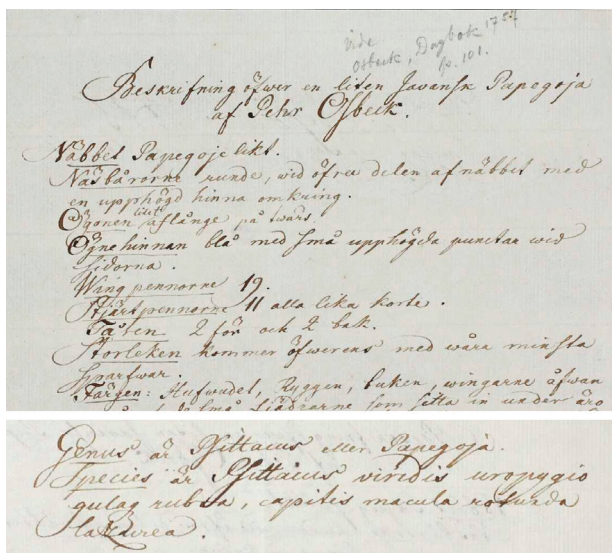 vide
Osbeck, Dagbok 1757
p. 101.
Beskrifning öfwer en liten Javansk Papegoja
af Pehr Osbeck.
Näbbet Papegoje likt.
Näsbårorne runde, wid öfra delen af näbbet med
en upphögd hinna omkring.
Ögonen litet aflånge på twärs.
Ögnehinnan blå med små upphögda punctar wid
sidorna.
Wingpennorne 19.
Stjärtpennorne 11 alla lika korte.
Tåben 2 för och 2 bak.
Storleken kommer öfwerens med wåra minsta
sparfwar.
Färgen: Hufwudet, Ryggen, buken, wingarne ofwan
små fjädrarne som sitta in under äro
Genus är Psittacus eller Papegoja.
Species är Psittacus viridis uropygio
gulaq rubra, capitis macula rotunda